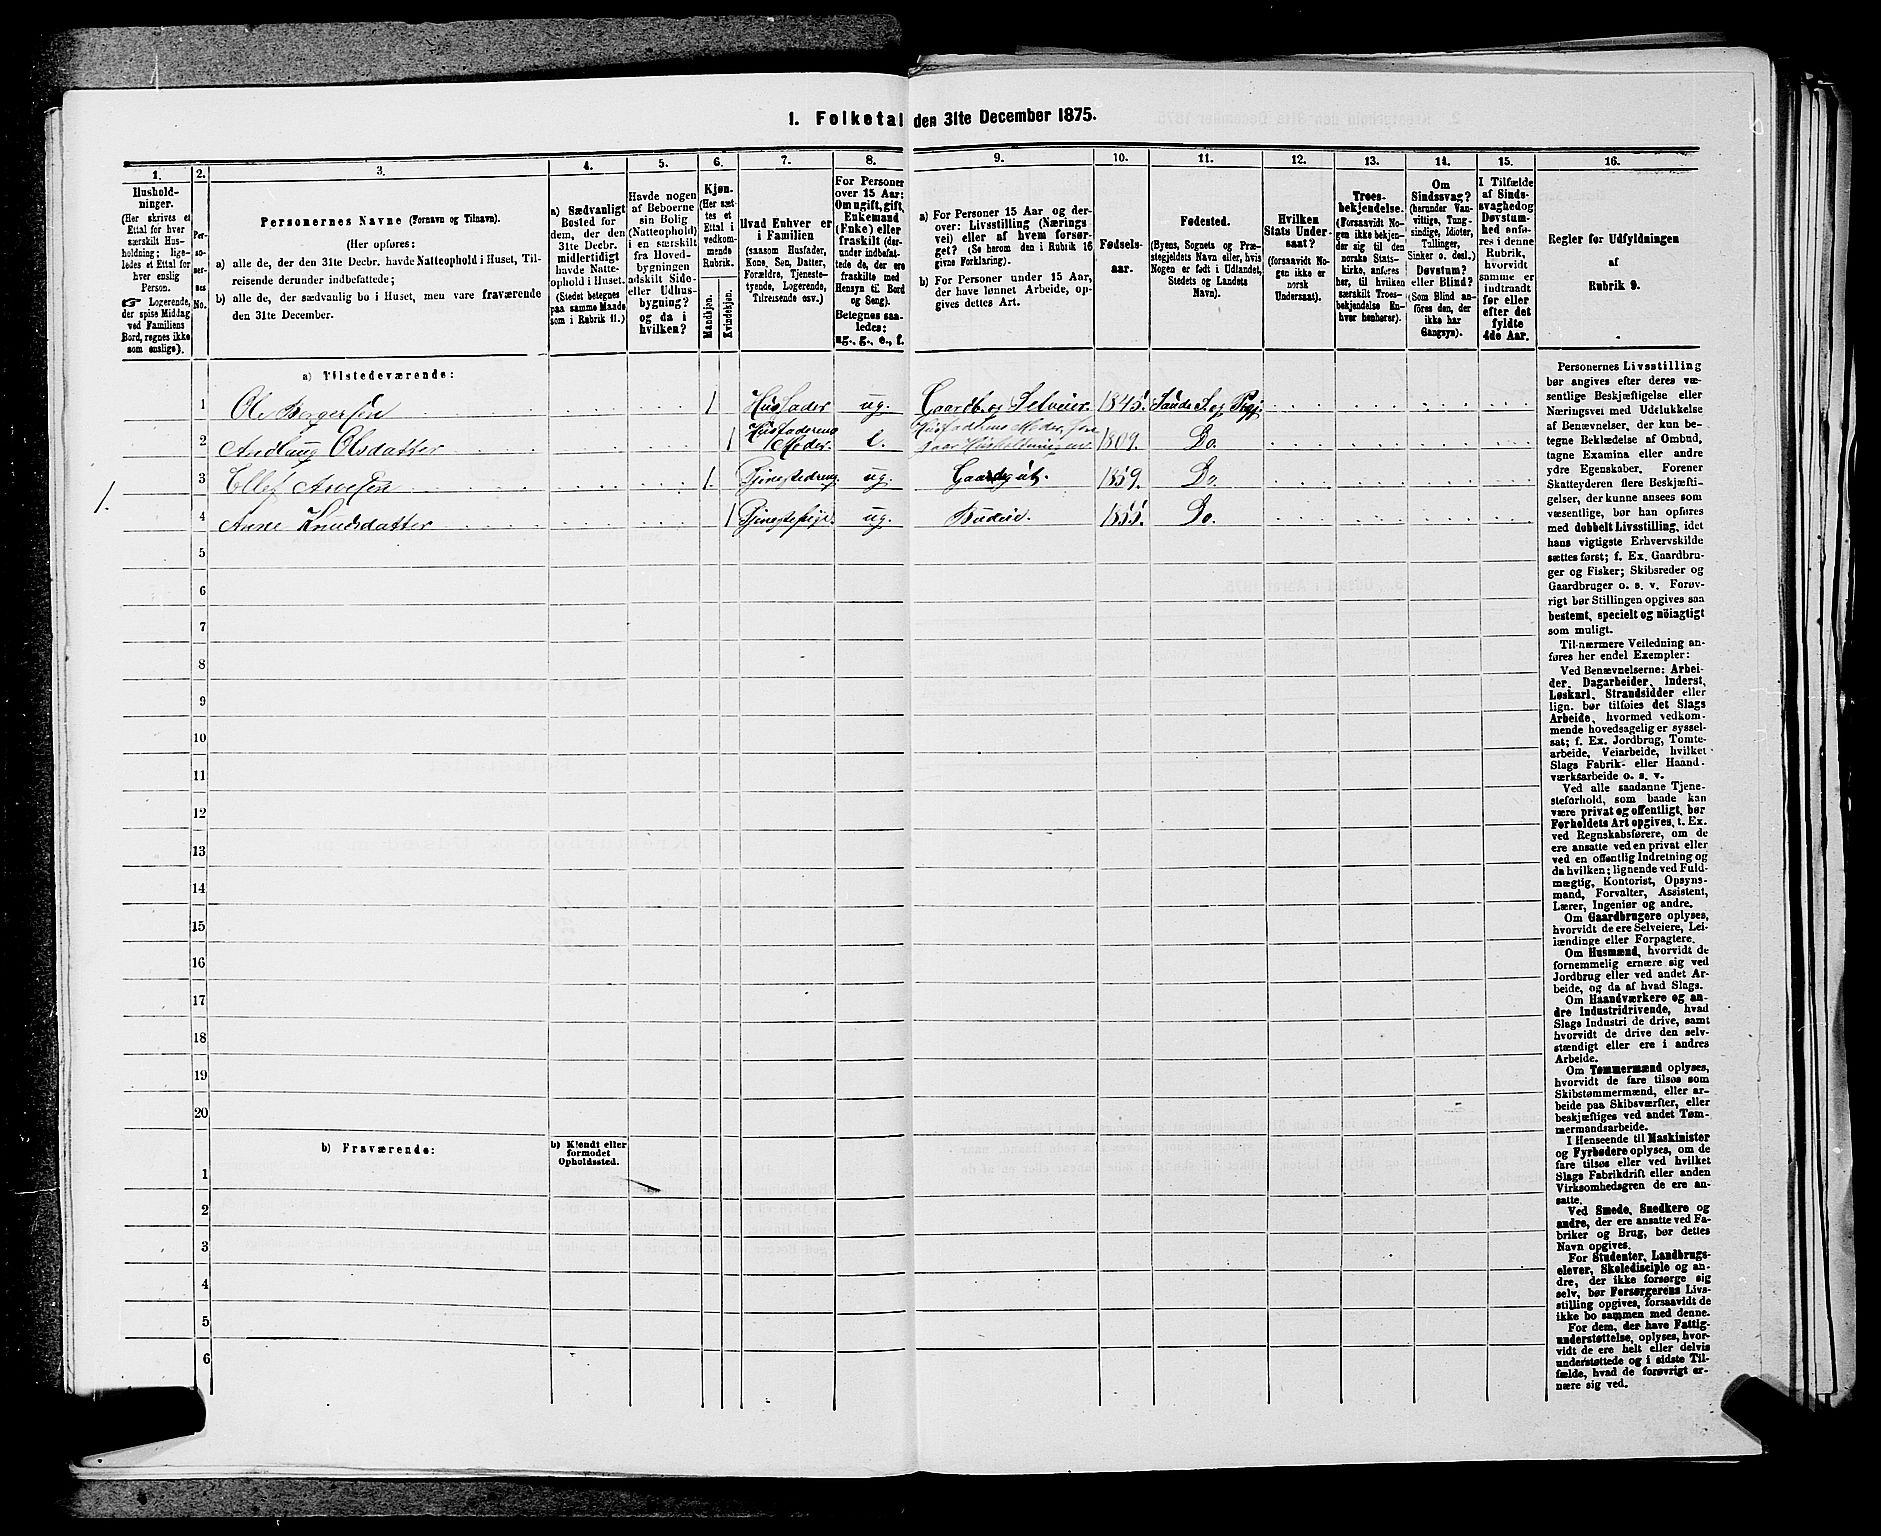 1. Folketal den 31te December 1875.
1.
Hushold-
ninger.
(Her skrives et
Ettal for hver
særskilt Hus-
holdning; lige-
ledes et Ettal for
hver enslig
Person.
Logerende,
der spise Middag
ved Familiens
Bord, regnes ikke
som enslige).
2.
Per-
soner-
nes
No.
3.
Personernes Navne (Fornavn og Tilnavn).
(Her opføres:
a) alle de, der den 31te Decbr. havde Natteophold i Huset, Til-
reisende derunder indbefattede;
b) alle de, der sædvanlig bo i Huset, men vare fraværende
den 31te December.
4.
a) Sædvanligt
Bosted for
dem, der den
31te Decbr.
midlertidigt
havde Natte-
ophold i Huset.
(Stedet betegnes
paa samme Maade
som i Rubrik 11.)
5.
Havde nogen
af Beboerne
sin Bolig
(Natteophold)
i en særskilt
fra Hoved-
bygningen
adskilt Side-
eller Udhus-
bygning?
og da i
hvilken?
6.
Kjøn.
(Her sæt-
tes et
Ettal i
vedkom-
mende
Rubrik.
Mandkjøn.
Kvindekjøn.
7.
Hvad Enhver er
i Familien
(saasom Husfader,
Kone, Søn, Datter,
Forældre, Tjeneste-
tyende, Logerende,
Tilreisende osv.)
8.
For Personer
over 15 Aar:
Om ugift, gift,
Enkemand
(Enke) eller
fraskilt (der-
under indbefat-
tede de, der ere
fraskilte med
Hensyn til Bord
og Seng).
Betegnes saa-
ledes:
ug., g., e., f.
9.
a) For Personer 15 Aar og der-
over: Livsstilling (Nærings-
vei) eller af hvem forsør-
get? (Se herom den i Rubrik 16
givne Forklaring).
b) For Personer under 15 Aar,
der have lønnet Arbeide, op-
gives dettes Art.
10.
Fødsels-
aar.
11.
Fødested.
(Byens, Sognets og Præ-
stegjeldets Navn eller, hvis
Nogen er født i Udlandet,
Stedets og Landets
Navn).
12.
Hvilken
Stats Under-
saat?
(forsaavidt No-
gen ikke er
norsk
Undersaat).
13.
Troes-
bekjendelse.
(Forsaavidt No-
gen ikke bekjen-
der sig til den
norske Stats-
kirke, anføres
her, til hvilken
særskilt Troes-
bekjendelse En-
hver henhører).
14.
Om
Sindssvag?
(herunder Van-
vittige, Tung-
sindige, Idioter,
Tullinger,
Sinker o. desl.)
Døvstum?
eller Blind?
(Som Blind an-
føres den, der
ikke har
Gangsyn).
15.
I Tilfælde
af Sinds-
svaghed og
Døvstum-
hed anfø-
res i denne
Rubrik,
hvorvidt
samme er
indtraadt
før eller
efter det
fyldte
4de Aar.
16.
Regler for Udfyldningen
af
Rubrik 9.
a) Tilstedeværende:
1 Ole Bergersen 1 Husfader ug. Gaardb. og Selveier. 1845. Sande S. og Prgj.
2 Andlaug Olsdatter 1 Husfaderens Moder. e. Husfaderens Moder, 1809. Do.
3 Ellef Anesen 1. Tjenestedreng ug. Gaardsgut. 1859. Do.
1.
4 Anne Knudsdatter 1 Tjenestepige. ug. Budeie. 1855. Do.
5
6
7
8
9
10
11
12
13
14
15
16
17
18
19
20
b) Fraværende:
b) Kjendt eller
formodet
Opholdssted.
1
2
3
4
5
6
Personernes Livsstilling
bør angives efter deres væ-
sentlige Beskjæftigelse eller
Næringsvei med Udelukkelse
af Benævnelser, der kun be-
tegne Beklædelse af Ombud,
tagne Examina eller andre
ydre Egenskaber. Forener
Skatteyderen flere Beskjæfti-
gelser, der kunne ansees som
væsentlige, bør han opføres
med dobbelt Livsstilling, idet
hans vigtigste Erhvervskilde
sættes først; f. Ex. Gaardbru-
ger og Fisker; Skibsreder og
Gaardbruger o. s. v. Forøv-
rigt bør Stillingen opgives saa
bestemt, specielt og nöiagtigt
som muligt.
Til nærmere Veiledning an-
føres her endel Exempler:
Ved Benævnelserne: Arbei-
der, Dagarbeider, Inderst,
Løskarl, Strandsidder eller
lign. bør tilføies det Slags
Arbeide, hvormed vedkom-
mende hovedsagelig er syssel-
sat; f. Ex. Jordbrug, Tomte-
arbeide, Veiarbeide, hvilket
Slags Fabrik- eller Haand-
værksarbeide o. s. v.
Ved alle saadanne Tjene-
steforhold, som baade kan
være privat og offentligt, bør
Forholdets Art opgives, f. Ex.
ved Regnskabsførere, om de
ere ansatte ved en privat eller
ved en offentlig Indretning og
da hvilken; lignende ved Fuld-
mægtig, Kontorist, Opsyns-
mand, Forvalter, Assistent,
Lærer, Ingeniør og andre.
Om Gaardbrugere oplyses,
hvorvidt de ere Selveiere, Lei-
lændinge eller Forpagtere.
Om Husmænd, hvorvidt de
fornemmelig ernære sig ved
Jordbrug eller ved andet Ar-
beide, og da af hvad Slags.
Om Haandværkere og an-
dre Industridrivende, hvad
Slags Industri de drive, samt
hvorvidt de drive den selv-
stændigt eller ere i andres
Arbeide.
Om Tømmermænd oplyses,
hvorvidt de fare tilsøs som
Skibstømmermænd, eller ar-
beide paa Skibsværfter, eller
beskjæftiges ved andet Tøm-
mermandsarbeide.
I Henseende til Maskinister
og Fyrbødere oplyses, om de
fare tilsøs eller ved hvilket
Slags Fabrikdrift eller anden
Virksomhedsgren de ere an-
satte.
Ved Smede, Snedkere og
andre, der ere ansatte ved Fa-
briker og Brug, bør dettes
Navn opgives.
For Studenter, Landbrugs-
elever, Skoledisciple og an-
dre, der ikke forsørge sig
selv, bør Forsørgerens Livs-
stilling opgives, forsaavidt de
ikke bo sammen med denne.
For dem, der have Fattig-
understøttelse, oplyses, hvor-
vidt de ere helt eller delvis
understøttede og i sidste Til-
fælde, hvad de forøvrigt er-
nære sig ved.